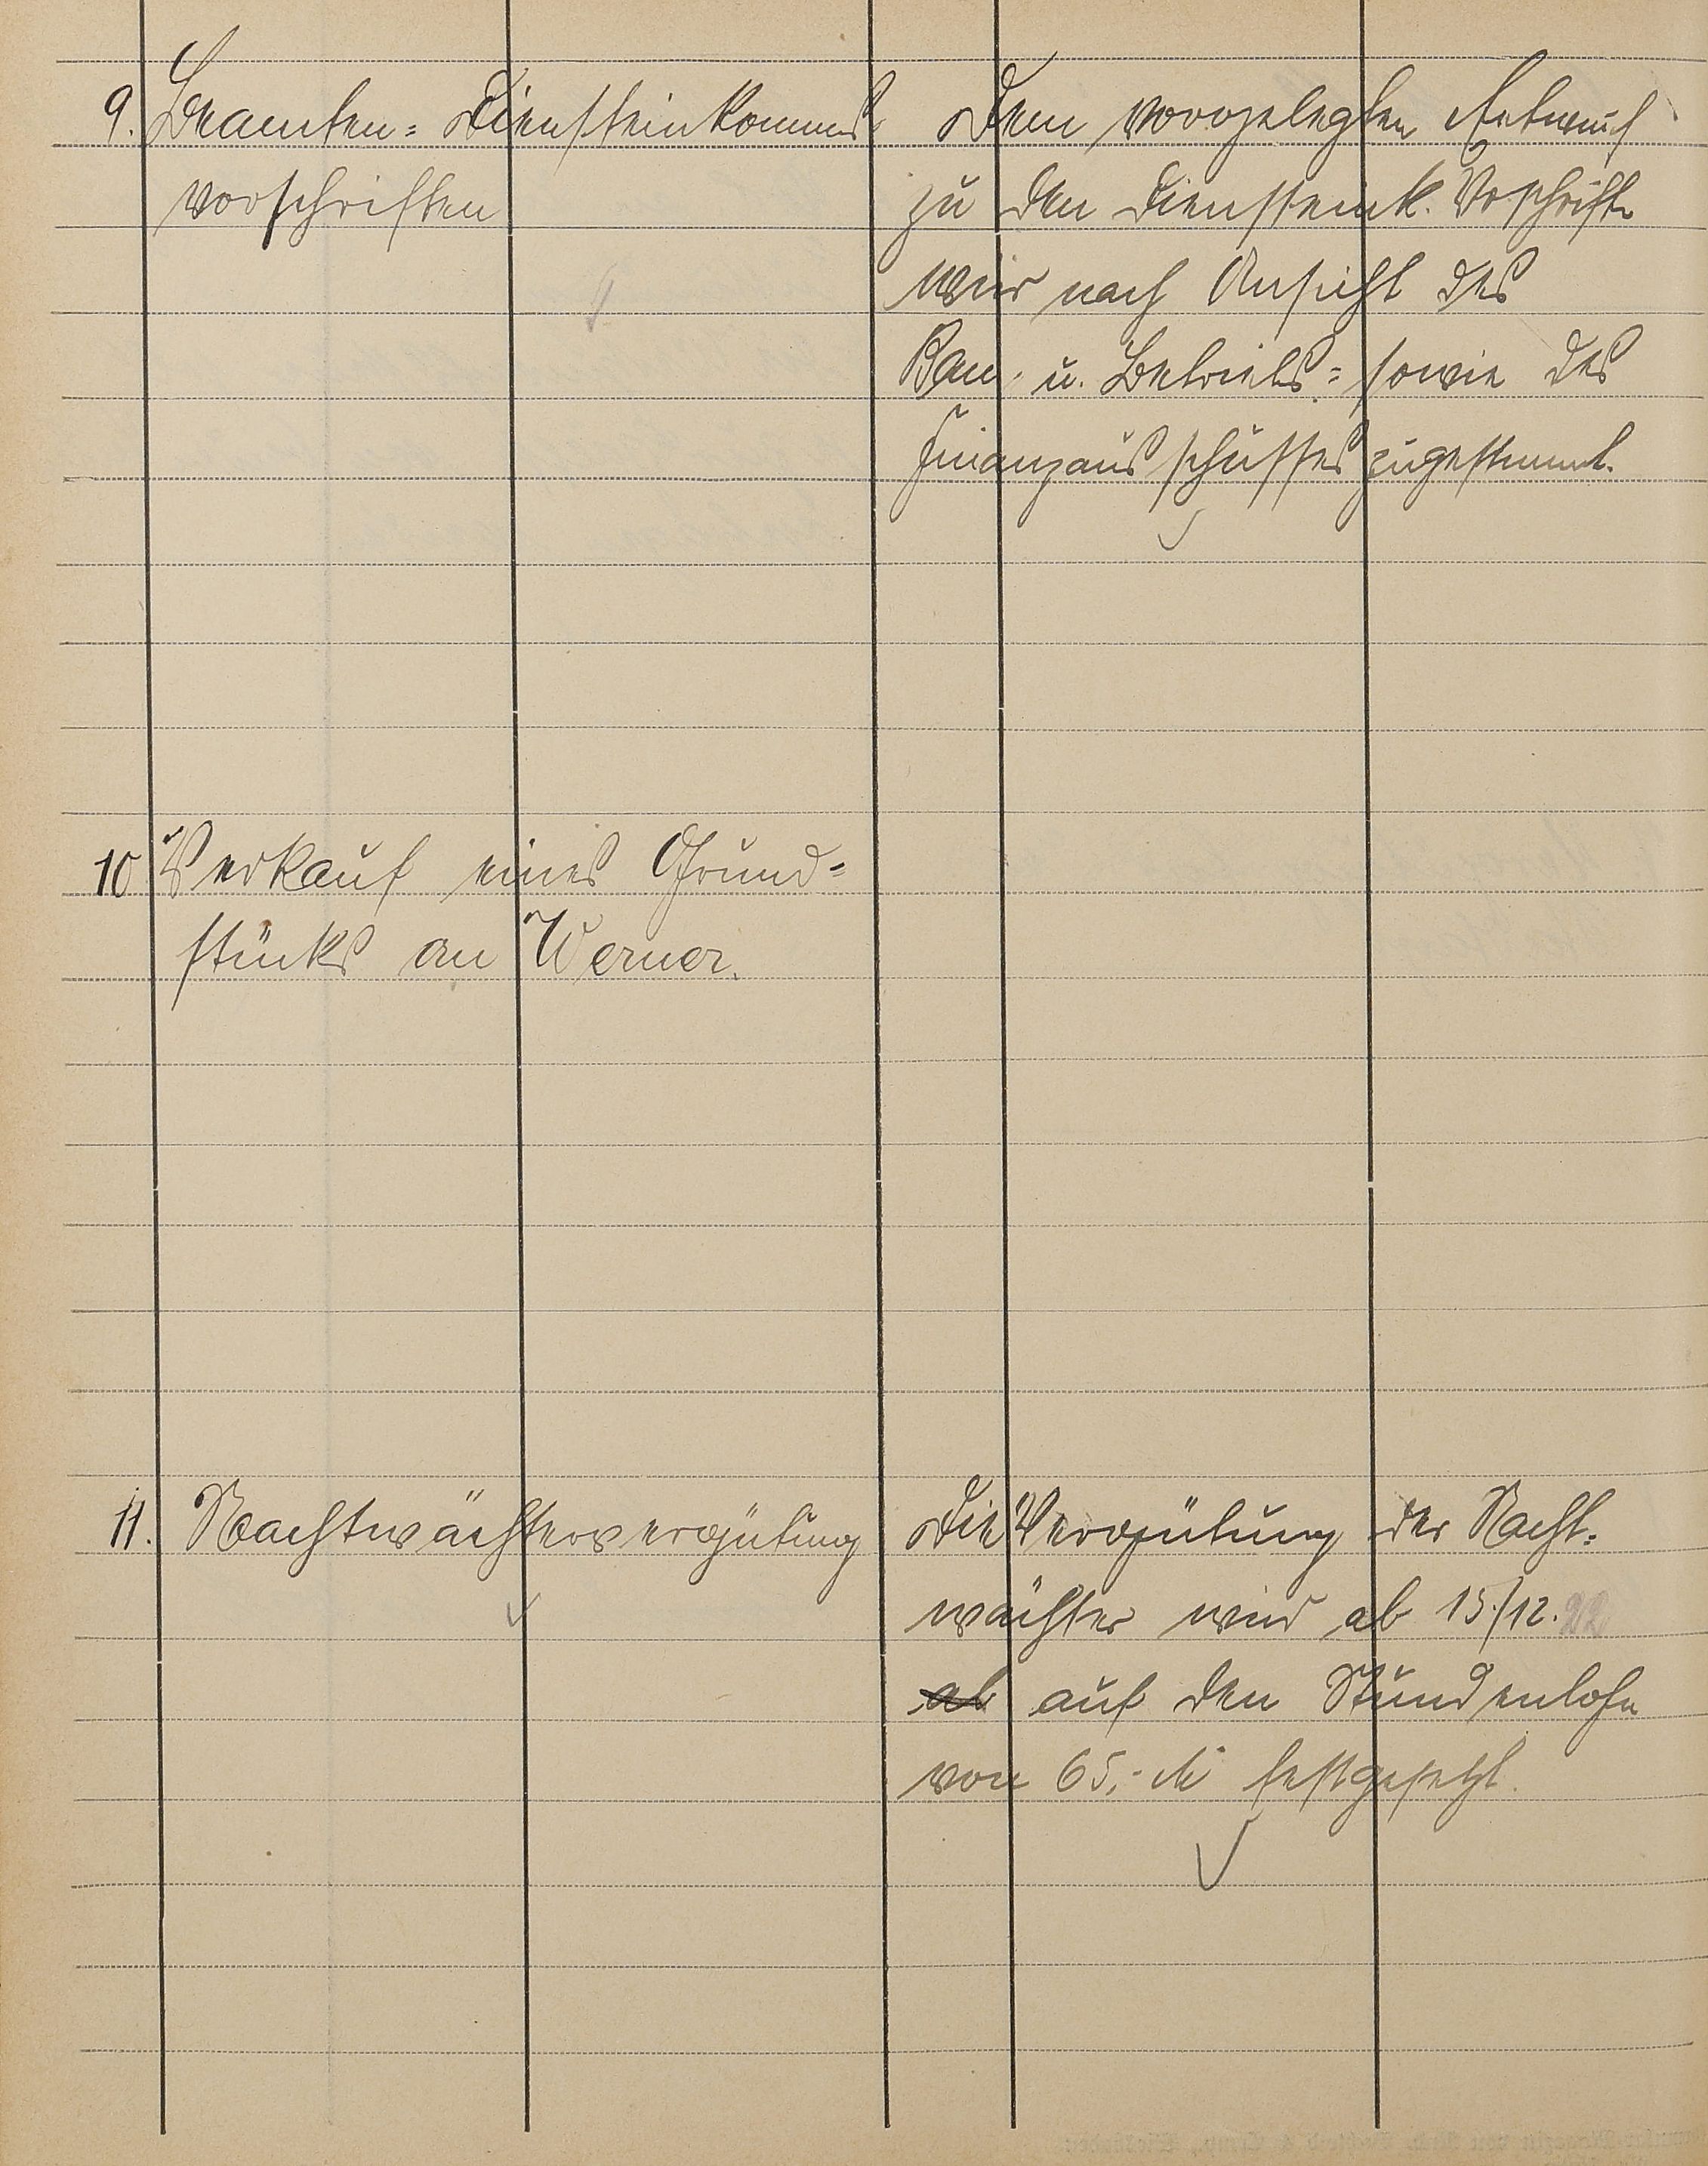 9. Beamten= Diensteinkommens
vorschriften
Dem vorgelegten Entwurf
zu den Diensteink. Vorschrift.
wird nach Ansicht des
Bau- u. Betriebs= sowie des
Finanzausschusses zugestimmt.
10 Verkauf eines Grund=
stücks an Werner.
11. Nachtwächtervergütung
Die Vergütung der Nacht=
wächter wird ab 15./12. 22
ab auf den Stundenlohn
von 65,- M festgesetzt.